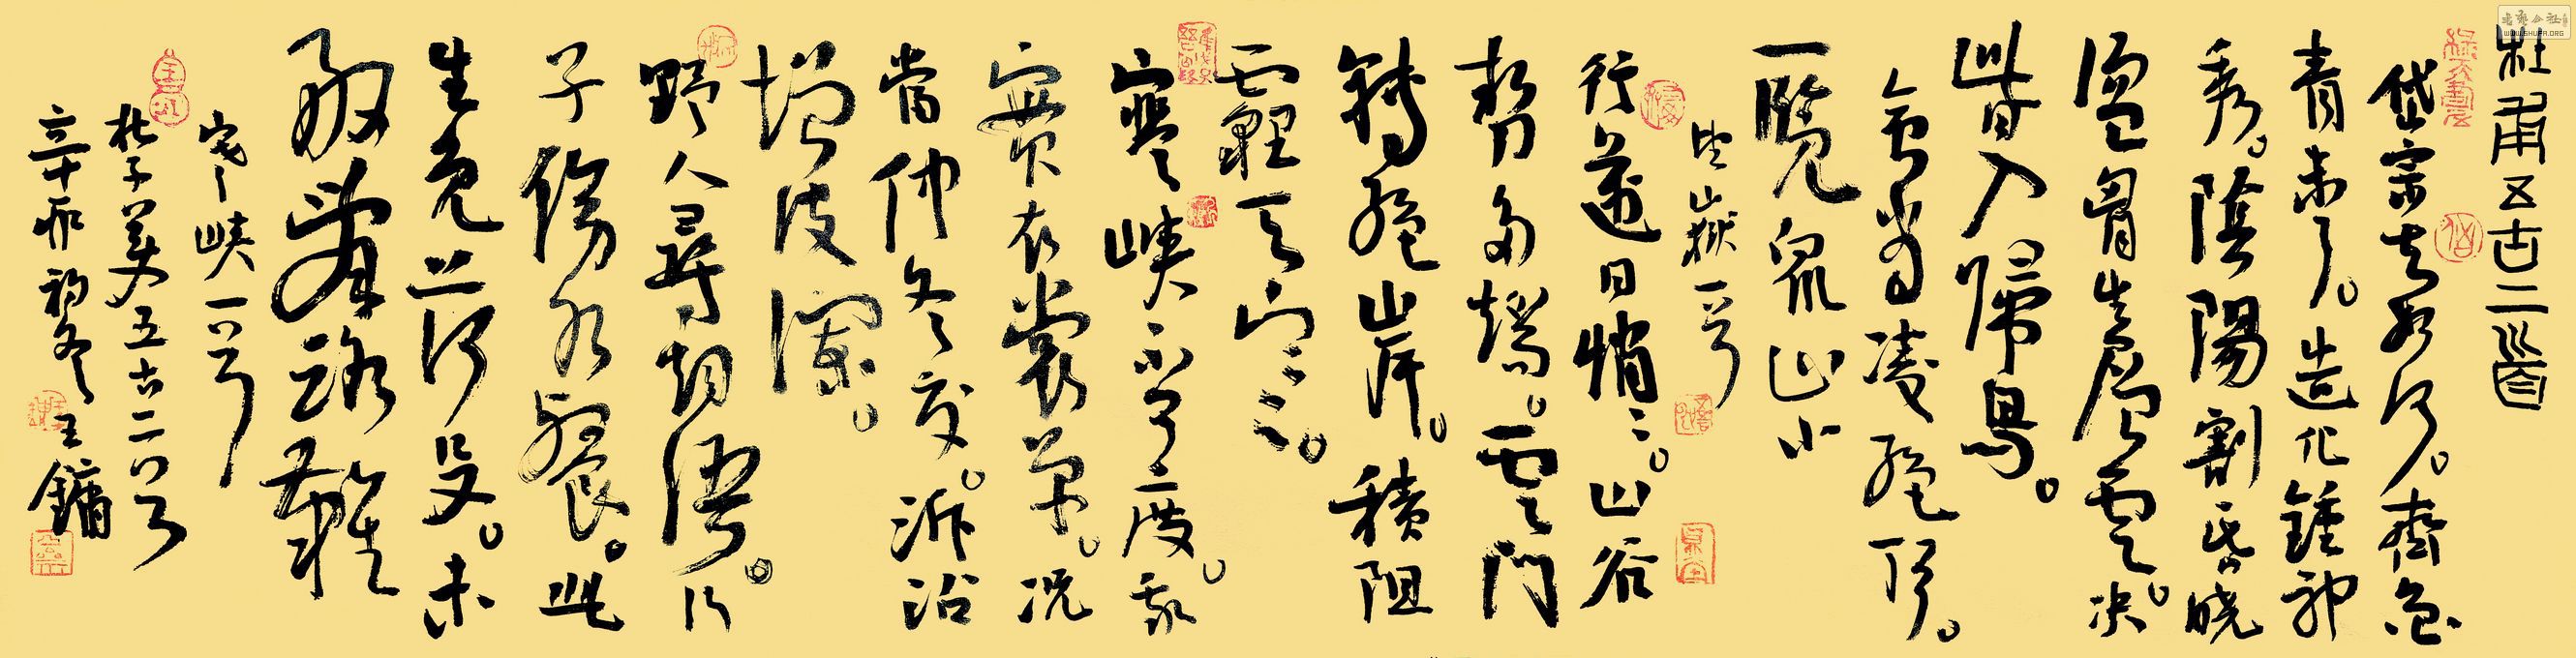 杜甫五古二首
岱宗夫如何。齊魯
青未了。造化鍾神
秀。陰陽割昏曉
盪胸生層雲。決
眥入歸鳥。
會當凌絕頂。
一覽眾山小
望嶽一首
行邁日悄〻。山谷
勢多端。雲門
轉絕岸。積阻
霾天寒。
寒峽不可度。我
實衣裳單。況
當仲冬交。泝沿
增波瀾。
野人尋煙語。行
子傍水餐。此
生免荷殳。未
敢辭路難
寒峽一首
杜子美五古二首
辛卯初冬王鏞
WWW.SHUFA.ORG